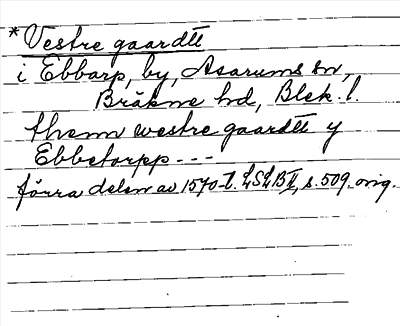 *Vestre gaardtt
i Ebbarp, by, Asarums sn,
Bräkne hd, Blek. l.
thenn westre gaardtt y
Ebbetorpp ---
förra delen av 1570-t. LSLB II, s. 509. orig.